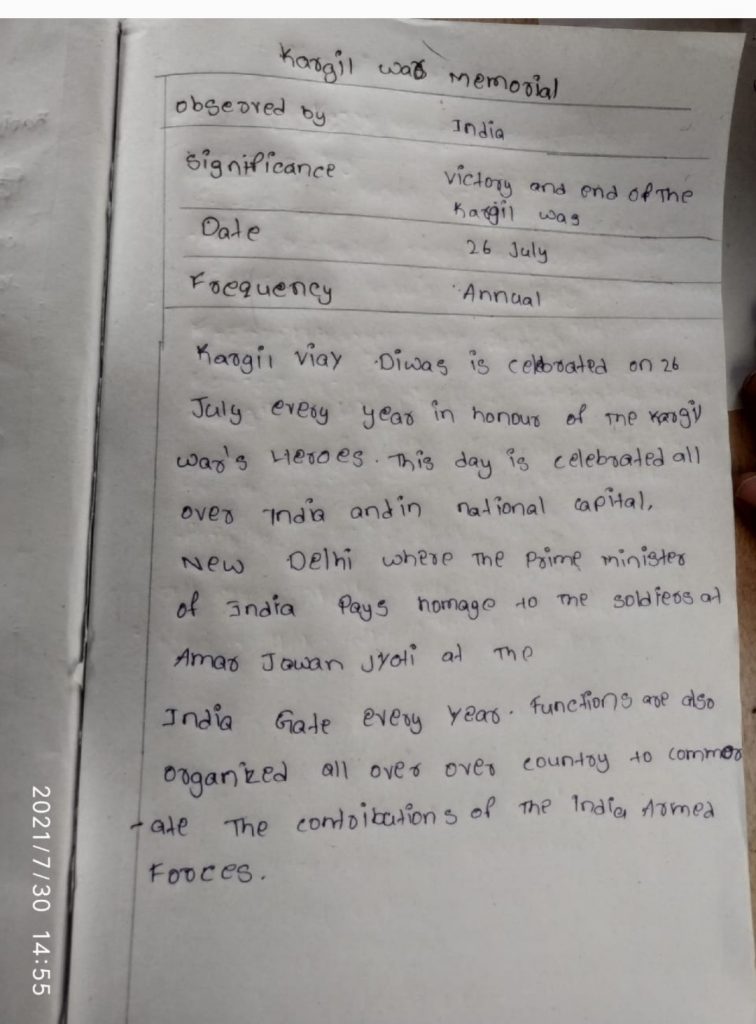 Kargil war memorial
observed by India
Significance victory and end of the
Kargil war
Date 26 July
Frequency Annual
Kargil Viay Diwas is celebrated on 26
July every year in honour of the Kargil
war's Heroes. This day is celebrated all
over India and in national capital,
New Delhi where the Prime minister
of India Pays homage to the soldiers at
Amar Jawan Jyoti at the
India Gate every year. Functions are also
organized all over over country to commor
-ate the contributions of the India Armed
Forces.
2021/7/30 14:55